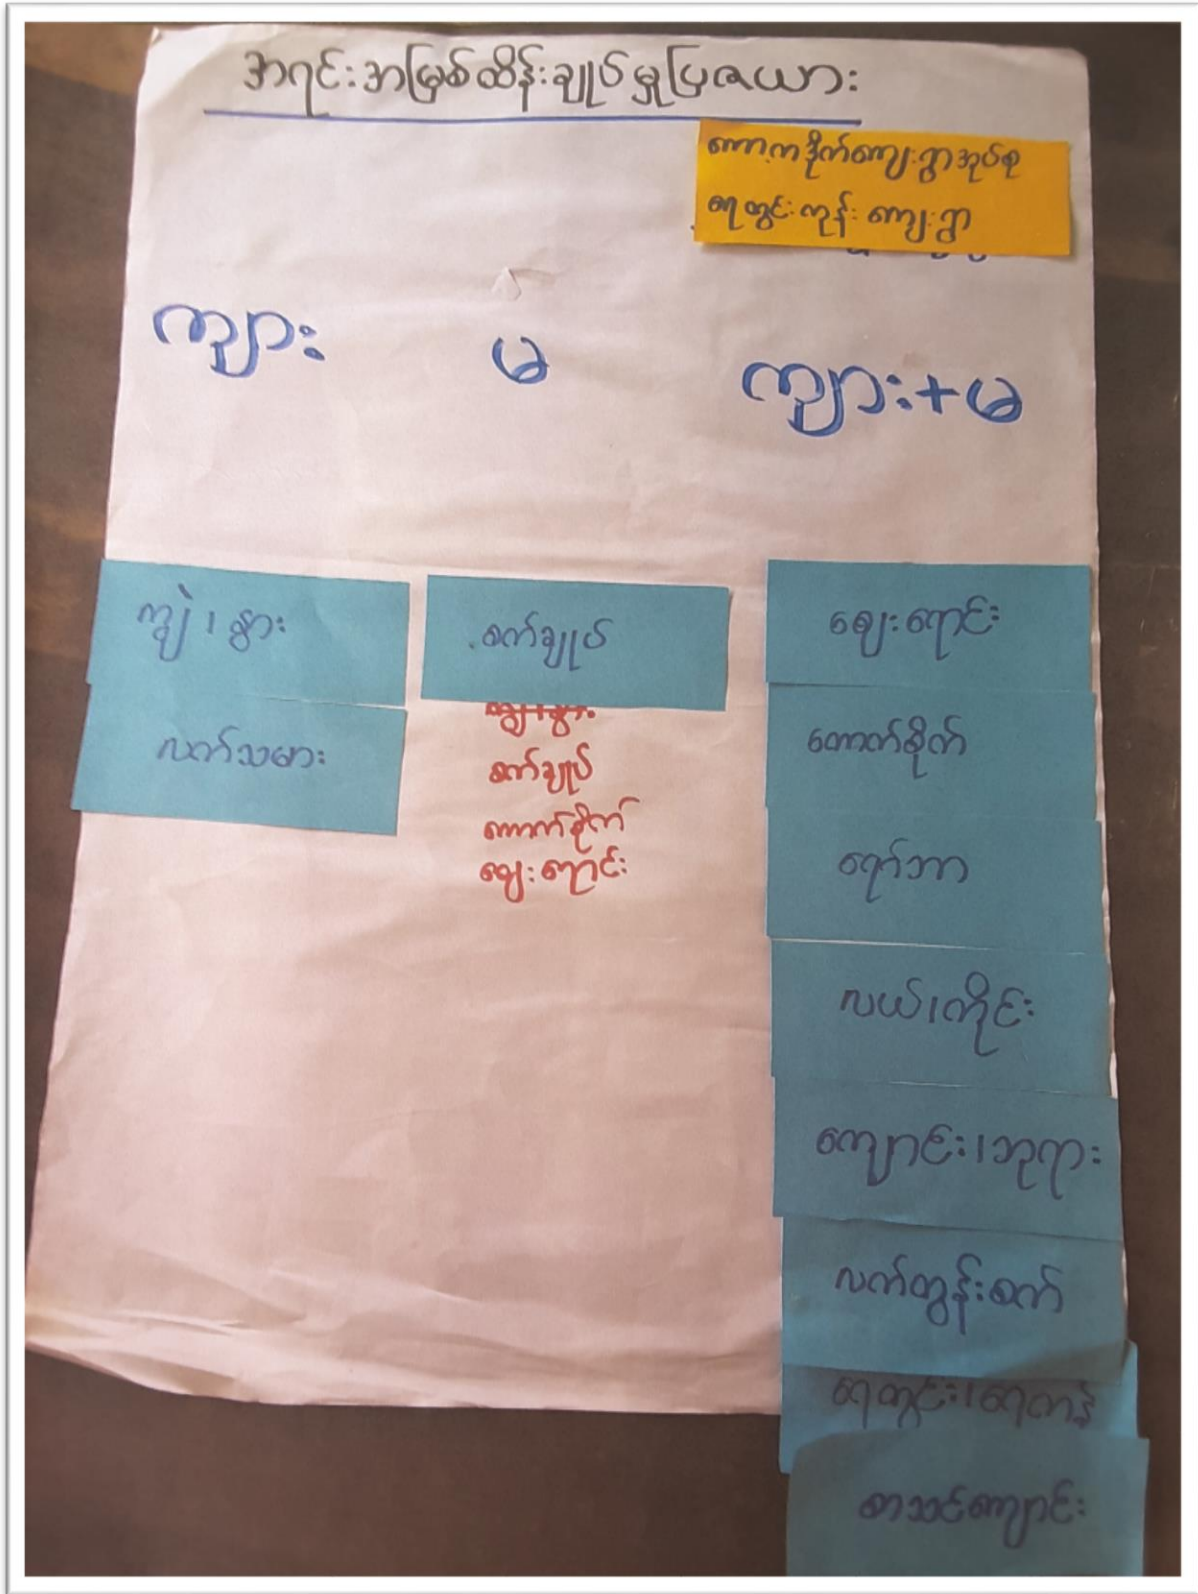 အရင်းအမြစ်ထိန်းချုပ်မှုပြဇယား
ကော့ကဒိုက်ကျေးရွာအုပ်စု
ရေတွင်းကုန်း ကျေးရွာ
ကျား
မ
ကျား+မ
ကျွဲ၊နွား
လက်သမား
စက်ချုပ်
ကျွဲ၊နွား
စက်ချုပ်
ကောက်စိုက်
ဈေးရောင်း
ဈေးရောင်း
ကောက်စိုက်
ရော်ဘာ
လယ်၊ကိုင်း
ကျောင်း၊ဘုရား
လက်တွန်းစက်
ရေတွင်း၊ရေကန်
စာသင်ကျောင်း